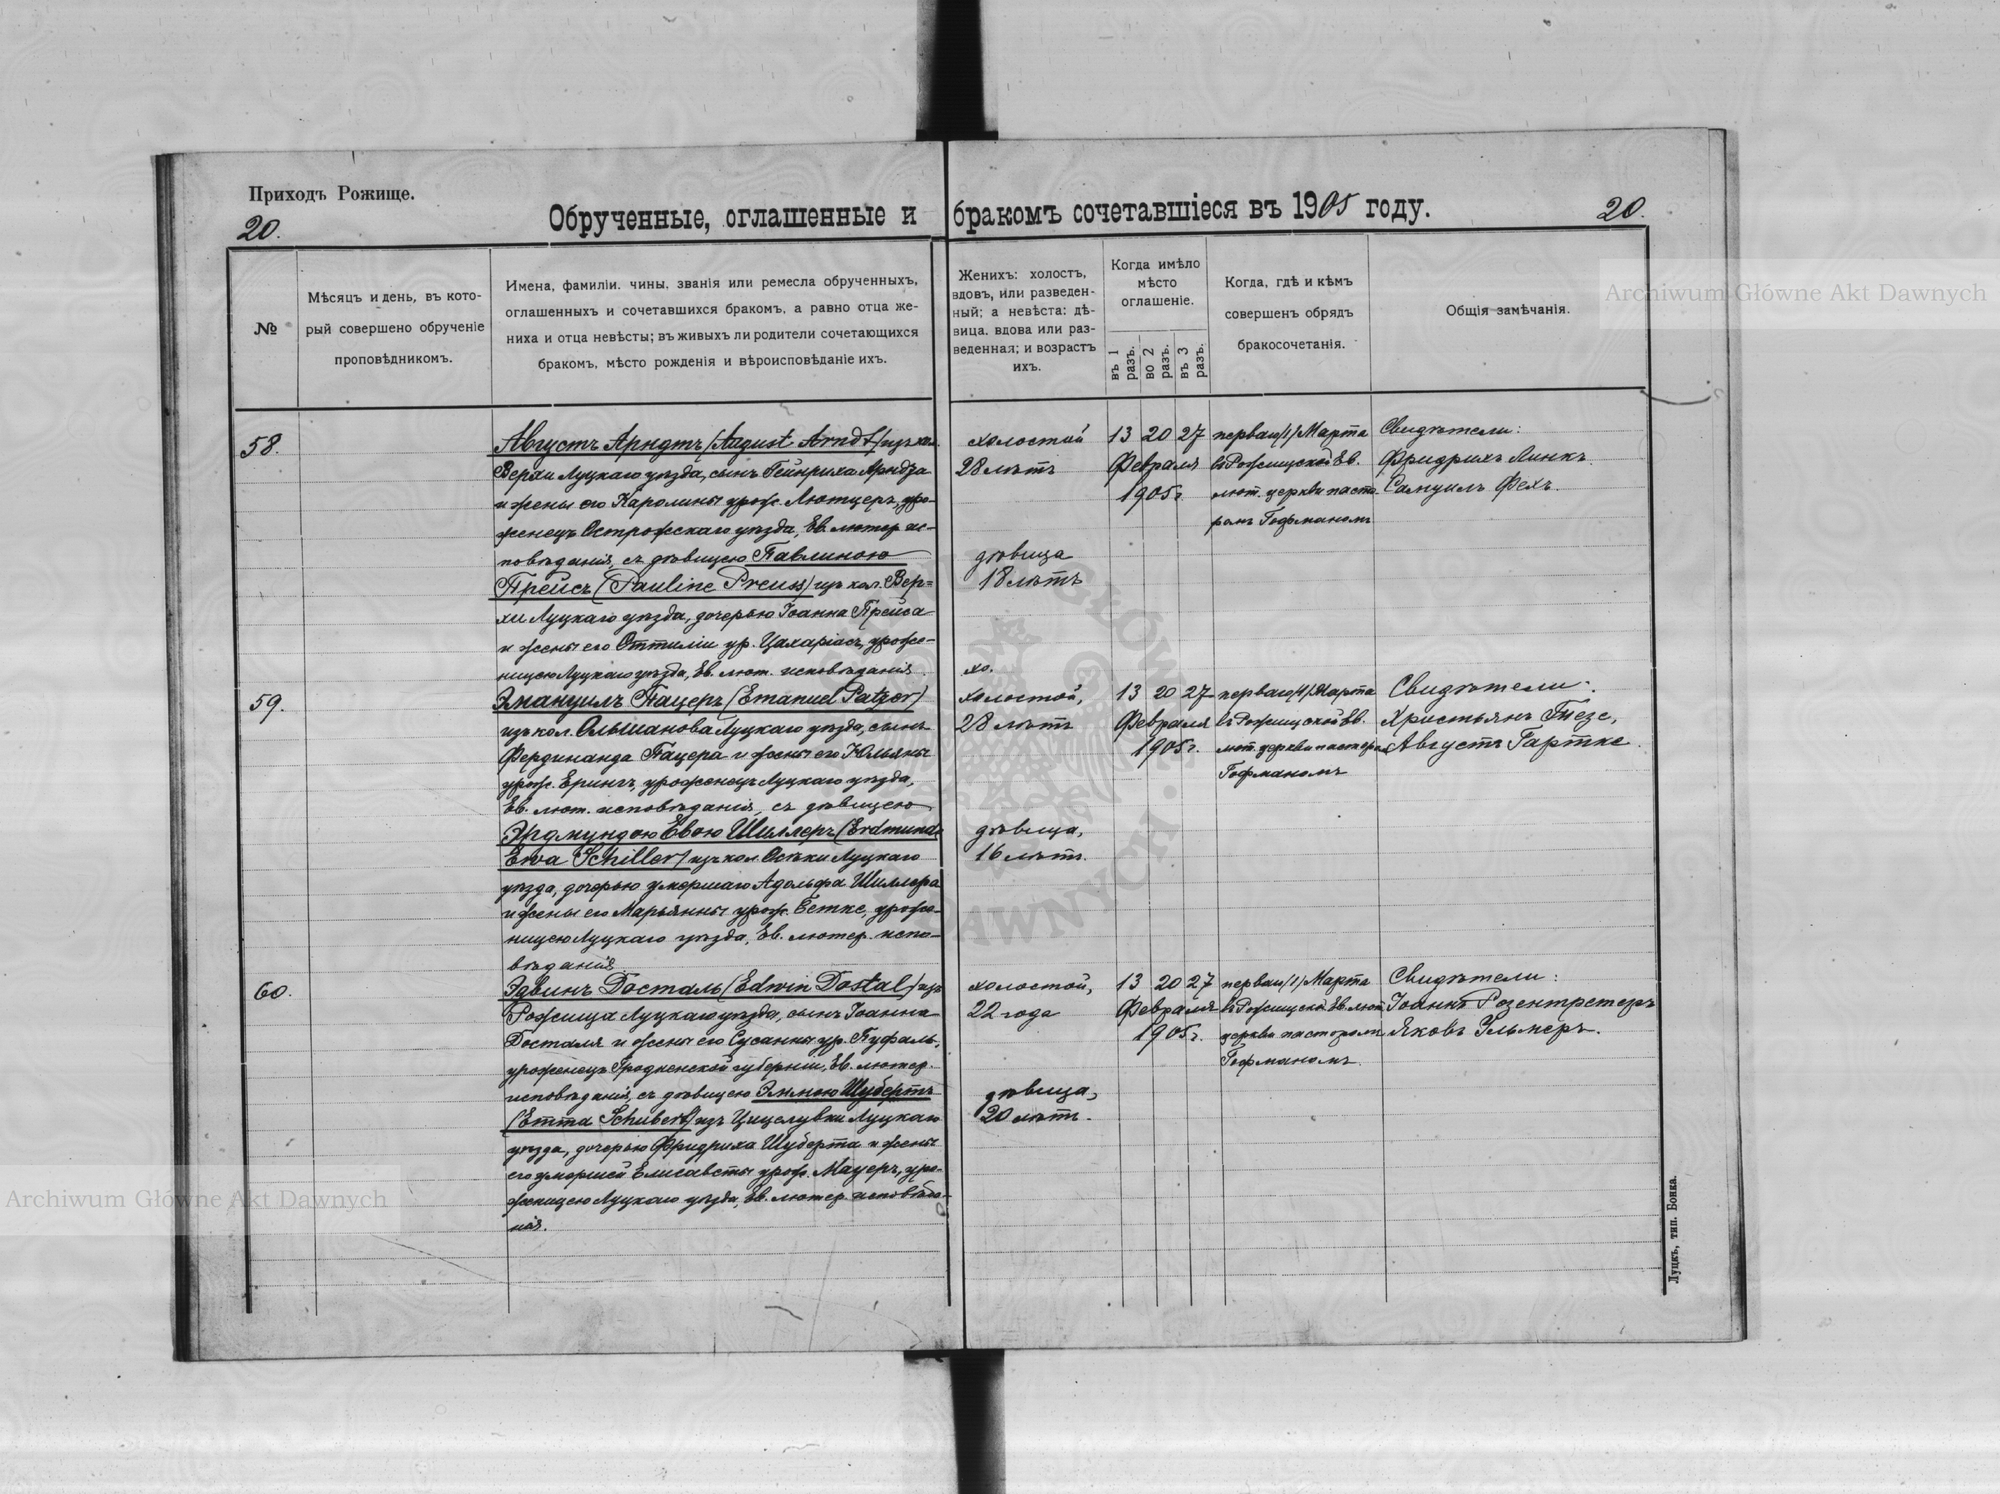 Приходъ Рожище.
20.
Обрученные, оглашенные и бракомъ сочетавшіеся въ 1905 году.
20.
№
Мѣсяцъ и день, въ кото-
рый совершено обрученіе
проповѣдникомъ.
Имена, фамиліи, чины, званія или ремесла обрученныхъ,
оглашенныхъ и сочетавшихся бракомъ, а равно отца же-
ниха и отца невѣсты; въ живыхъ ли родители сочетающихся
бракомъ, мѣсто рожденія и вѣроисповѣданіе ихъ.
Женихъ: холостъ,
вдовъ, или разведен-
ный; а невѣста: дѣ-
вица, вдова или раз-
веденная; и возрастъ
ихъ.
Когда имѣло
мѣсто
оглашеніе.
въ 1 разъ.
во 2 разъ.
въ 3 разъ.
Когда, гдѣ и кѣмъ
совершенъ обрядъ
бракосочетанія.
Общія замѣчанія.
58.
Августъ Арндтъ (August Arndt) изъ кол.
Верхи Луцкаго уѣзда, сынъ Гейнриха Арндта
и жены его Каролины урож. Лютцеръ, уро-
женецъ Острожскаго уѣзда, Ев. лютер. ис-
повѣданія, съ дѣвицею Павлиною
Прейсъ (Pauline Preuss) изъ кол. Вер-
хи Луцкаго уѣзда, дочерью Іоанна Прейса
и жены его Оттиліи ур. Цахаріасъ, уроже-
ницею Луцкаго уѣзда, Ев. лют. исповѣданія.
холостой
28 лѣтъ
дѣвица
18 лѣтъ
13 20 27
Февраля
1905 г.
перваго /1/ Марта
въ Рожищской Ев.
лют. церкви пасто-
ромъ Гофманомъ
Свидѣтели:
Фридрихъ Линкъ.
Самуилъ Фехъ.
59.
Эмануилъ Пацеръ (Emanuel Patzer)
изъ кол. Ольшанова Луцкаго уѣзда, сынъ
Фердинанда Пацера и жены его Юльяны
урож. Ерингъ, уроженецъ Луцкаго уѣзда,
Ев. лют. исповѣданія, съ дѣвицею
Эрдмундою Евою Шиллеръ (Erdmunde
Ewa Schiller) изъ кол. Осѣки Луцкаго
уѣзда, дочерью умершаго Адольфа Шиллера
и жены его Марьянны урож. Бетке, уроже-
ницею Луцкаго уѣзда, Ев. лютер. испо-
вѣданія
хо.
холостой,
28 лѣтъ
дѣвица,
16 лѣтъ.
13 20 27
Февраля
1905 г.
перваго /1/ Марта
въ Рожищской Ев.
лют. церкви пасторомъ
Гофманомъ
Свидѣтели:
Христьянъ Тезе,
Августъ Гартке.
60.
Эдвинъ Досталь (Edwin Dostal) изъ
Рожища Луцкаго уѣзда, сынъ Іоанна
Досталя и жены его Сусанны ур. Пуфаль,
уроженецъ Гродненской губерніи, Ев. лютер.
исповѣданія, съ дѣвицею Эммою Шубертъ
(Emma Schubert) изъ Луцкаго
уѣзда, дочерью Фридриха Шуберта и жены
его умершей Елисаветы урож. Мауеръ, уро-
женицею Луцкаго уѣзда, Ев. лютер. исповѣда-
нія.
холостой,
22 года
дѣвица,
20 лѣтъ.
13 20 27
Февраля
1905 г.
перваго /1/ Марта
въ Рожищской Ев. лют.
церкви пасторомъ
Гофманомъ.
Свидѣтели:
Іоаннъ Розентретеръ
Яковъ Ульмеръ.
Луцкъ, тип. Бонка.
Archiwum Główne Akt Dawnych
Archiwum Główne Akt Dawnych